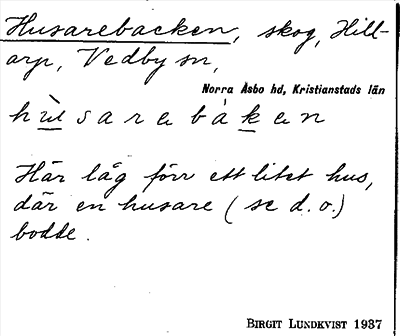 Husarebacken, skog, Hill-
arp, Vedby sn,
Norra Åsbo hd, Kristianstads län
hùsarebàken
Här låg förr ett litet hus,
där en husare (se d. o.)
bodde.
BIRGIT LUNDKVIST 1937